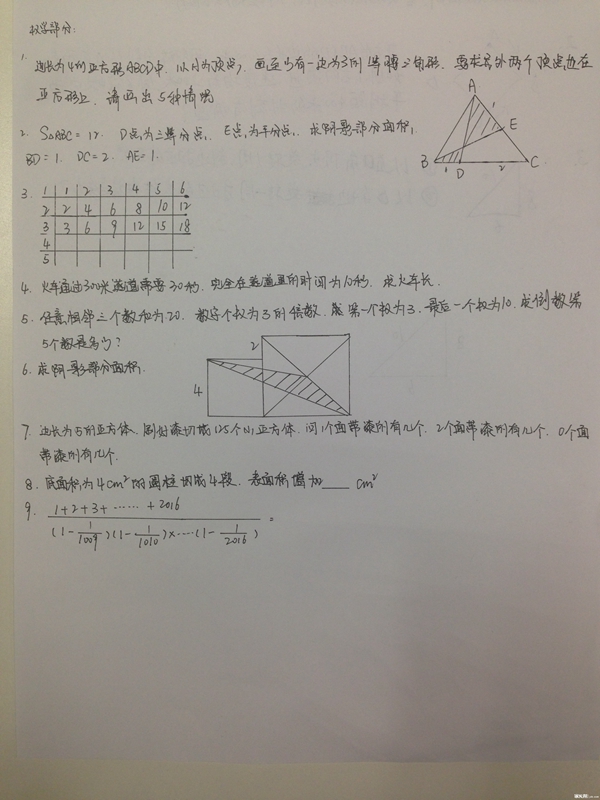 数学部分:
1. 边长为4的正方形ABCD中, 以A为顶点, 画至少有一边为3的等腰三角形. 要求另外两个顶点在
正方形上. 请画出5种情况
2. S△ABC = 12. D点为三等分点, E点为平分点, 求阴影部分面积.
BD = 1. DC = 2. AE = 1.
A
1
E
B
1
D
2
C
3. 1 1 2 3 4 5 6
2 2 4 6 8 10 12
3 3 6 9 12 15 18
4
5
4. 火车通过300米隧道需要30秒. 完全在隧道里的时间为10秒. 求火车长.
5. 任意相邻三个数加为20. 数字个数为3的倍数. 第一个数为3. 最后一个数为10. 求倒数第
5个数是多少?
6. 求阴影部分面积.
2
4
7. 边长为5的正方体. 刷好漆切成125个小正方体. 问1个面带漆的有几个. 2个面带漆的有几个. 0个面
带漆的有几个.
8. 底面积为4cm²的圆柱切成4段. 表面积增加___cm²
9. 1+2+3+……+2016
(1-1/1009)(1-1/1010)×……(1-1/2016) =